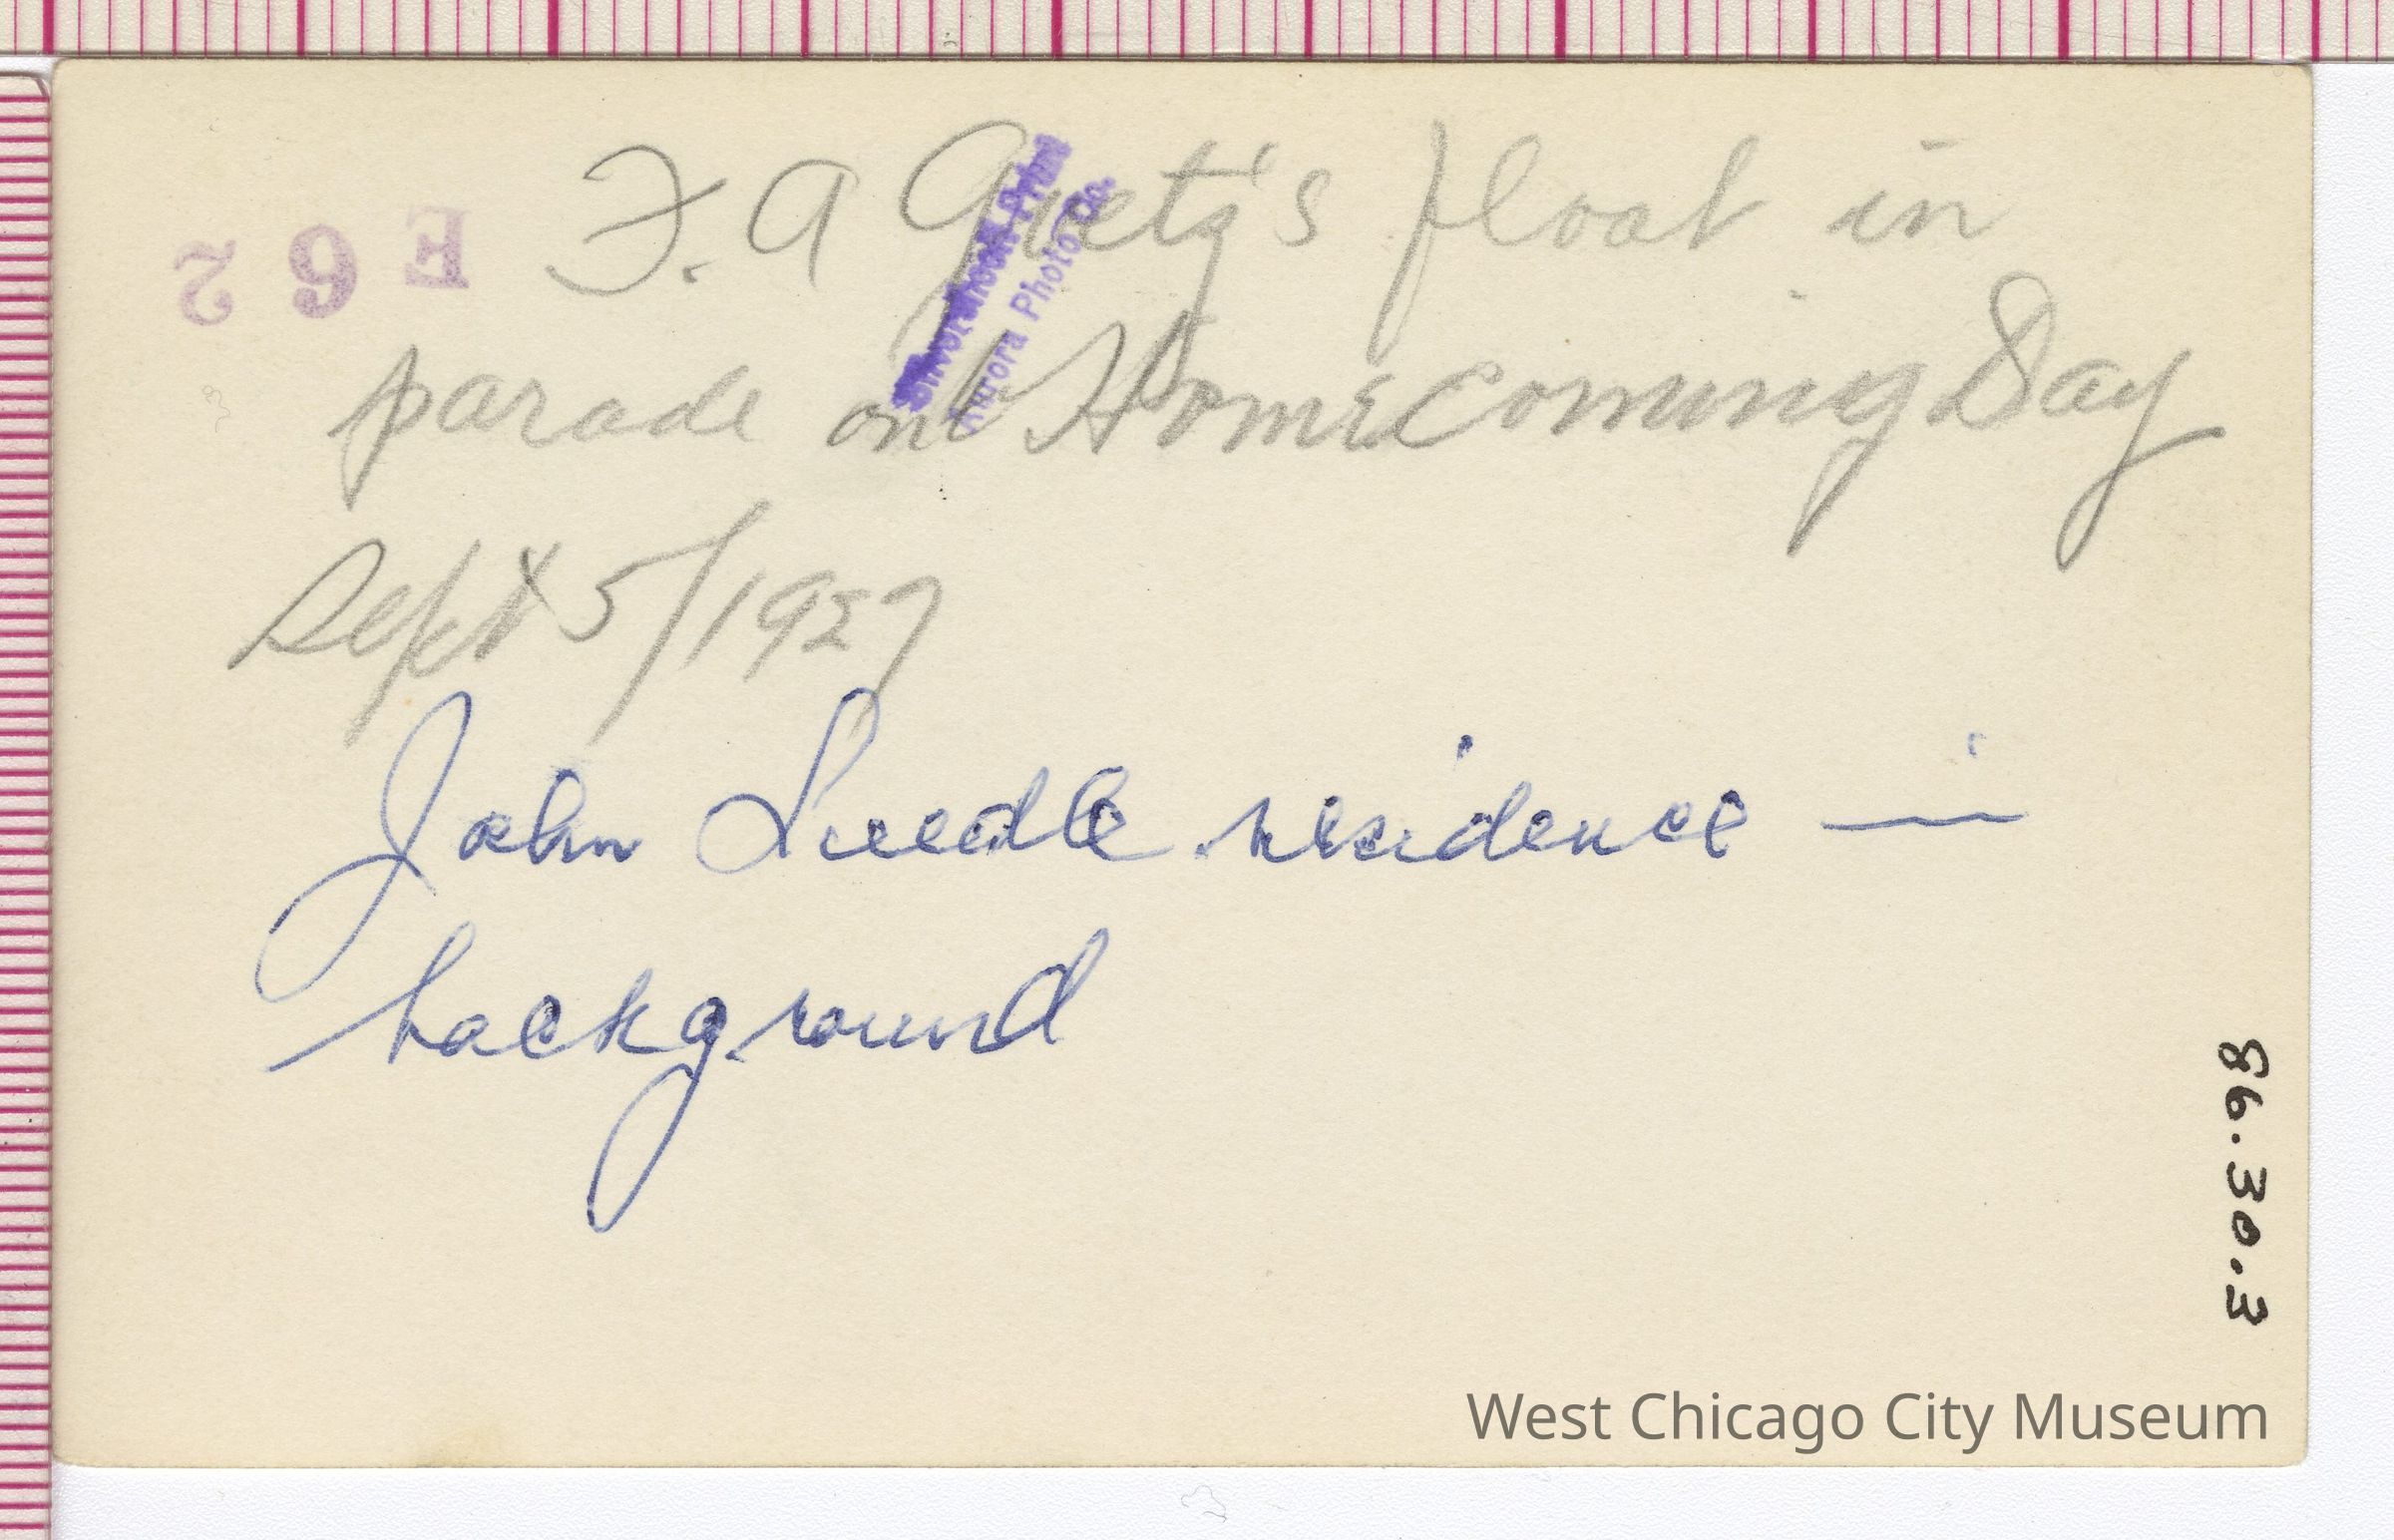 F. A Goetz's float in
parade on Homecoming Day
Sept 5/1927
John Luedke residence in
background
E 6 2
Aurora Photo Co.
86.30.3
West Chicago City Museum